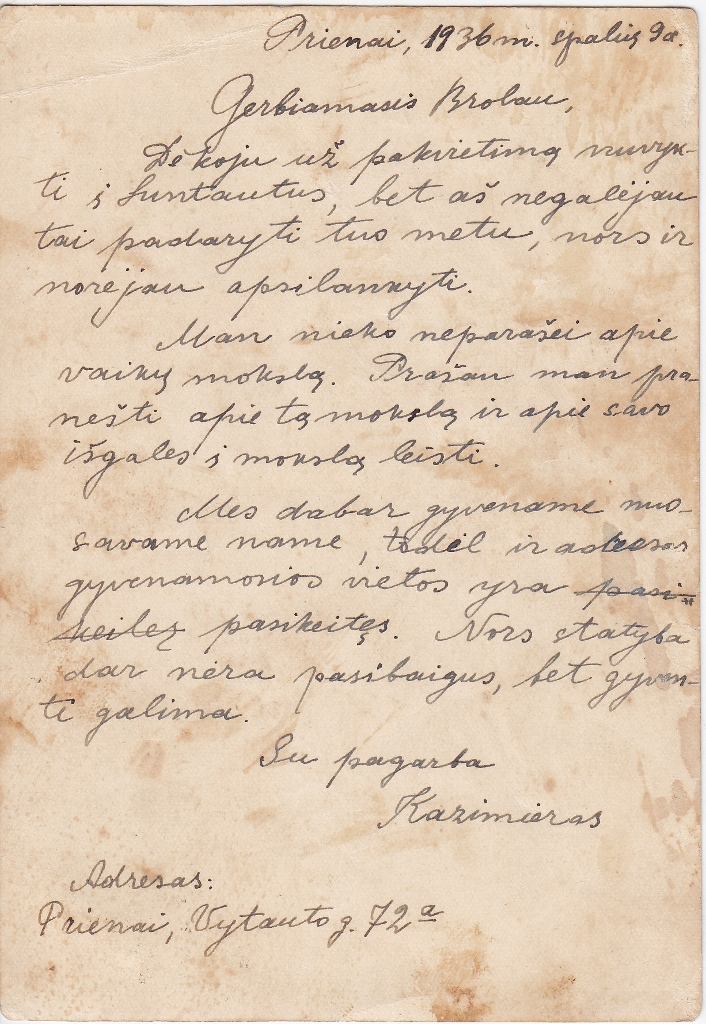 Prienai, 1936 m. spalių 9 d.
Gerbiamasis Brolau,
Dėkoju už pakvietimą nuvyk-
ti į Suntautus, bet aš negalėjau
tai padaryti tuo metu, nors ir
norėjau apsilankyti.
Man nieko neparašei apie
vaikų mokslą. Prašau man pra-
nešti apie tą mokslą ir apie savo
išgales į mokslą leisti.
Mes dabar gyvename nuo-
savame name, todėl ir adresas
gyvenamosios vietos yra pasi-
keitęs pasikeitęs. Nors statyba
dar nėra pasibaigus, bet gyven-
ti galima.
Su pagarba
Kazimieras
Adresas:
Prienai, Vytauto g. 72a